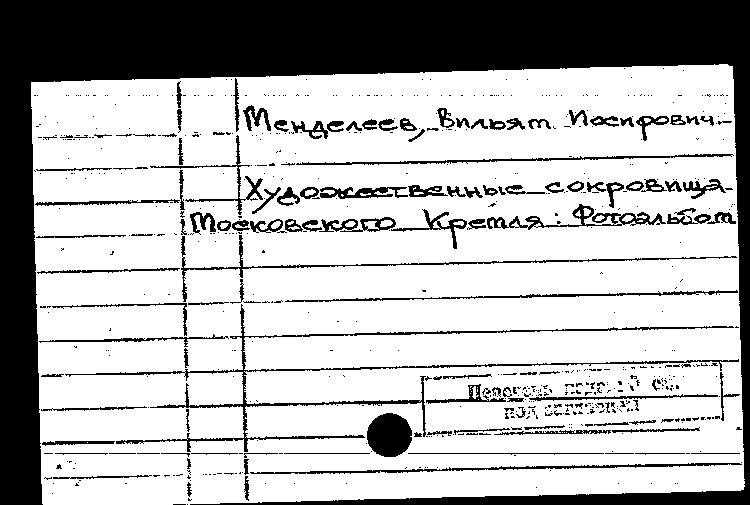 Менделеев, Вильят Иосифович.
Художественные сокровища
Московского Кремля: Фотоальбом
Перечень
под заглавием